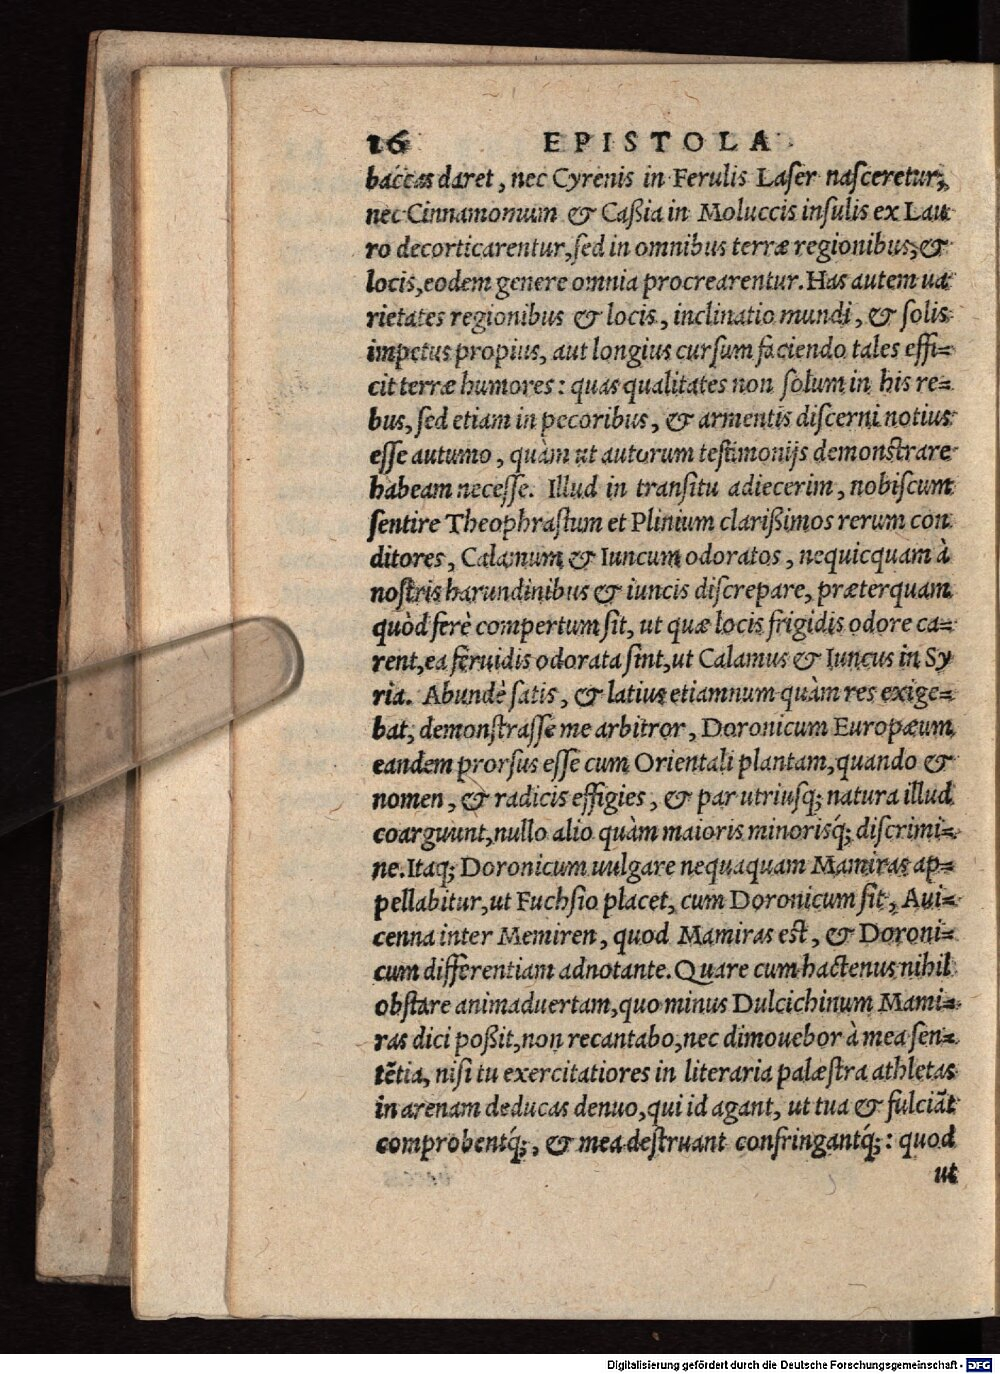 16 EPISTOLA
baccas daret, nec Cyrenis in Ferulis Laser nasceretur,
nec Cinnamomum & Caßia in Moluccis insulis ex Lau
ro decorticarentur, sed in omnibus terræ regionibus, &
locis, eodem genere omnia procrearentur. Has autem ua
rietates regionibus & locis, inclinatio mundi, & solis
impetus propius, aut longius cursum faciendo tales effi=
cit terræ humores: quas qualitates non solum in his re=
bus, sed etiam in pecoribus, & armentis discerni notius
esse autumo, quàm ut autorum testimonijs demonstrare
habeam necesse. Illud in transitu adiecerim, nobiscum
sentire Theophrastum et Plinium clarißimos rerum con
ditores, Calamum & Iuncum odoratos, nequicquam à
nostris harundinibus & iuncis discrepare, præterquam
quòd ferè compertum sit, ut quæ locis frigidis odore ca=
rent, ea feruidis odorata sint, ut Calamus & Iuncus in Sy
ria. Abundè satis, & latius etiamnum quàm res exige=
bat, demonstrasse me arbitror, Doronicum Europæum
eandem prorsus esse cum Orientali plantam, quando &
nomen, & radicis effigies, & par utriusq; natura illud
coarguunt, nullo alio quàm maioris minorisq́; discrimi=
ne. Itaq; Doronicum uulgare nequaquam Mamiras ap=
pellabitur, ut Fuchsio placet, cum Doronicum sit, Aui=
cenna inter Memiren, quod Mamiras est, & Doroni=
cum differentiam adnotante. Quare cum hactenus nihil
obstare animaduertam, quo minus Dulcichinum Mami=
ras dici poßit, non recantabo, nec dimouebor à mea sen=
tẽtia, nisi tu exercitatiores in literaria palæstra athletas
in arenam deducas denuo, qui id agant, ut tua & fulciãt
comprobentq́;, & mea destruant confringantq́;: quod
ut
Digitalisierung gefördert durch die Deutsche Forschungsgemeinschaft - DFG